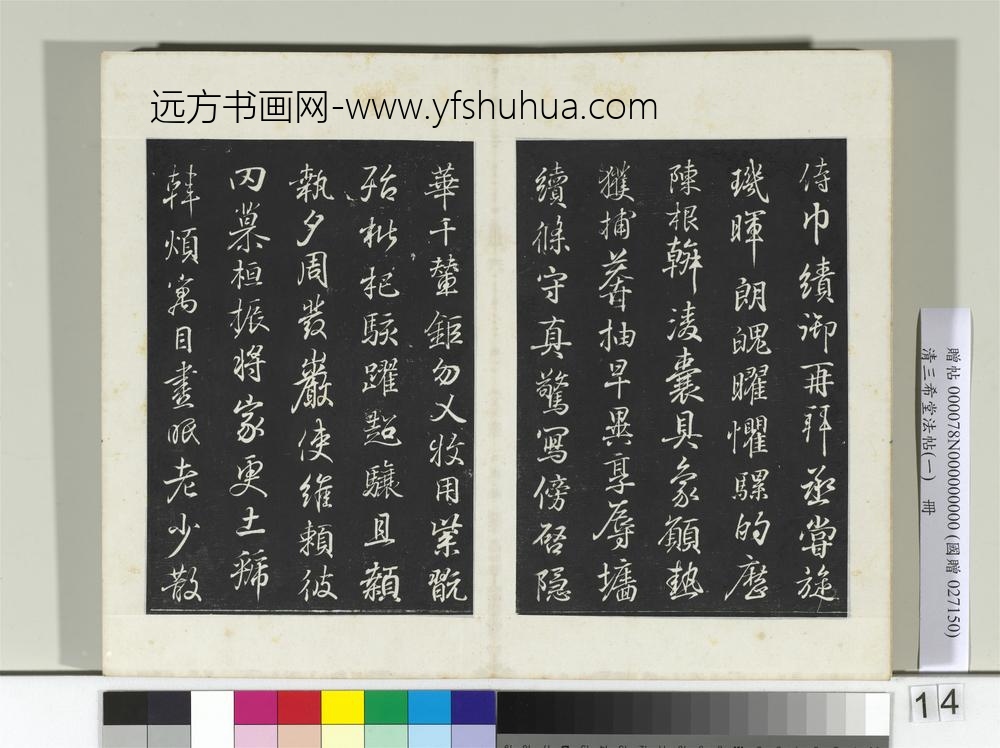 远方书画网-www.yfshuhua.com
侍巾績御再拜丞嘗旋
璣暉朗魄曜懼騾的歷
陳根斡凌囊具象顧熱
獲捕莽抽早異享辱墻
續條守真驚寫傍啓隱
華千輦鉅勿乂牧用業翫
殆枇杷駭躍超驤且顙
執夕周發巖使維賴彼
慕桓振將家更土號
韓煩寓目晝眠老少散
贈帖 000078N000000000 (國贈 027150)
清三希堂法帖(一) 冊
14